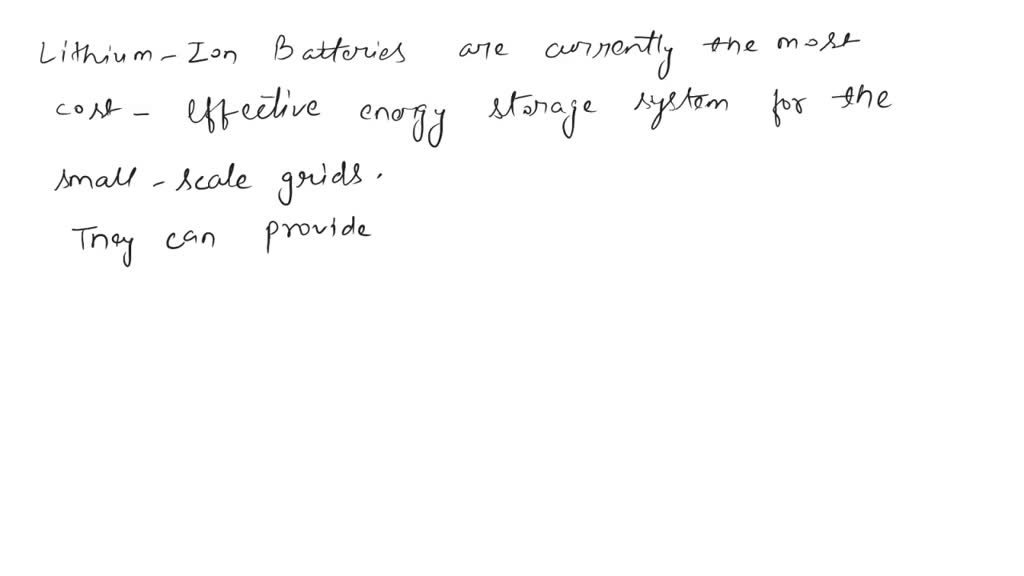 Lithium-Ion Batteries are currently the most
cost-effective energy storage system for the
small-scale grids.
They can provide